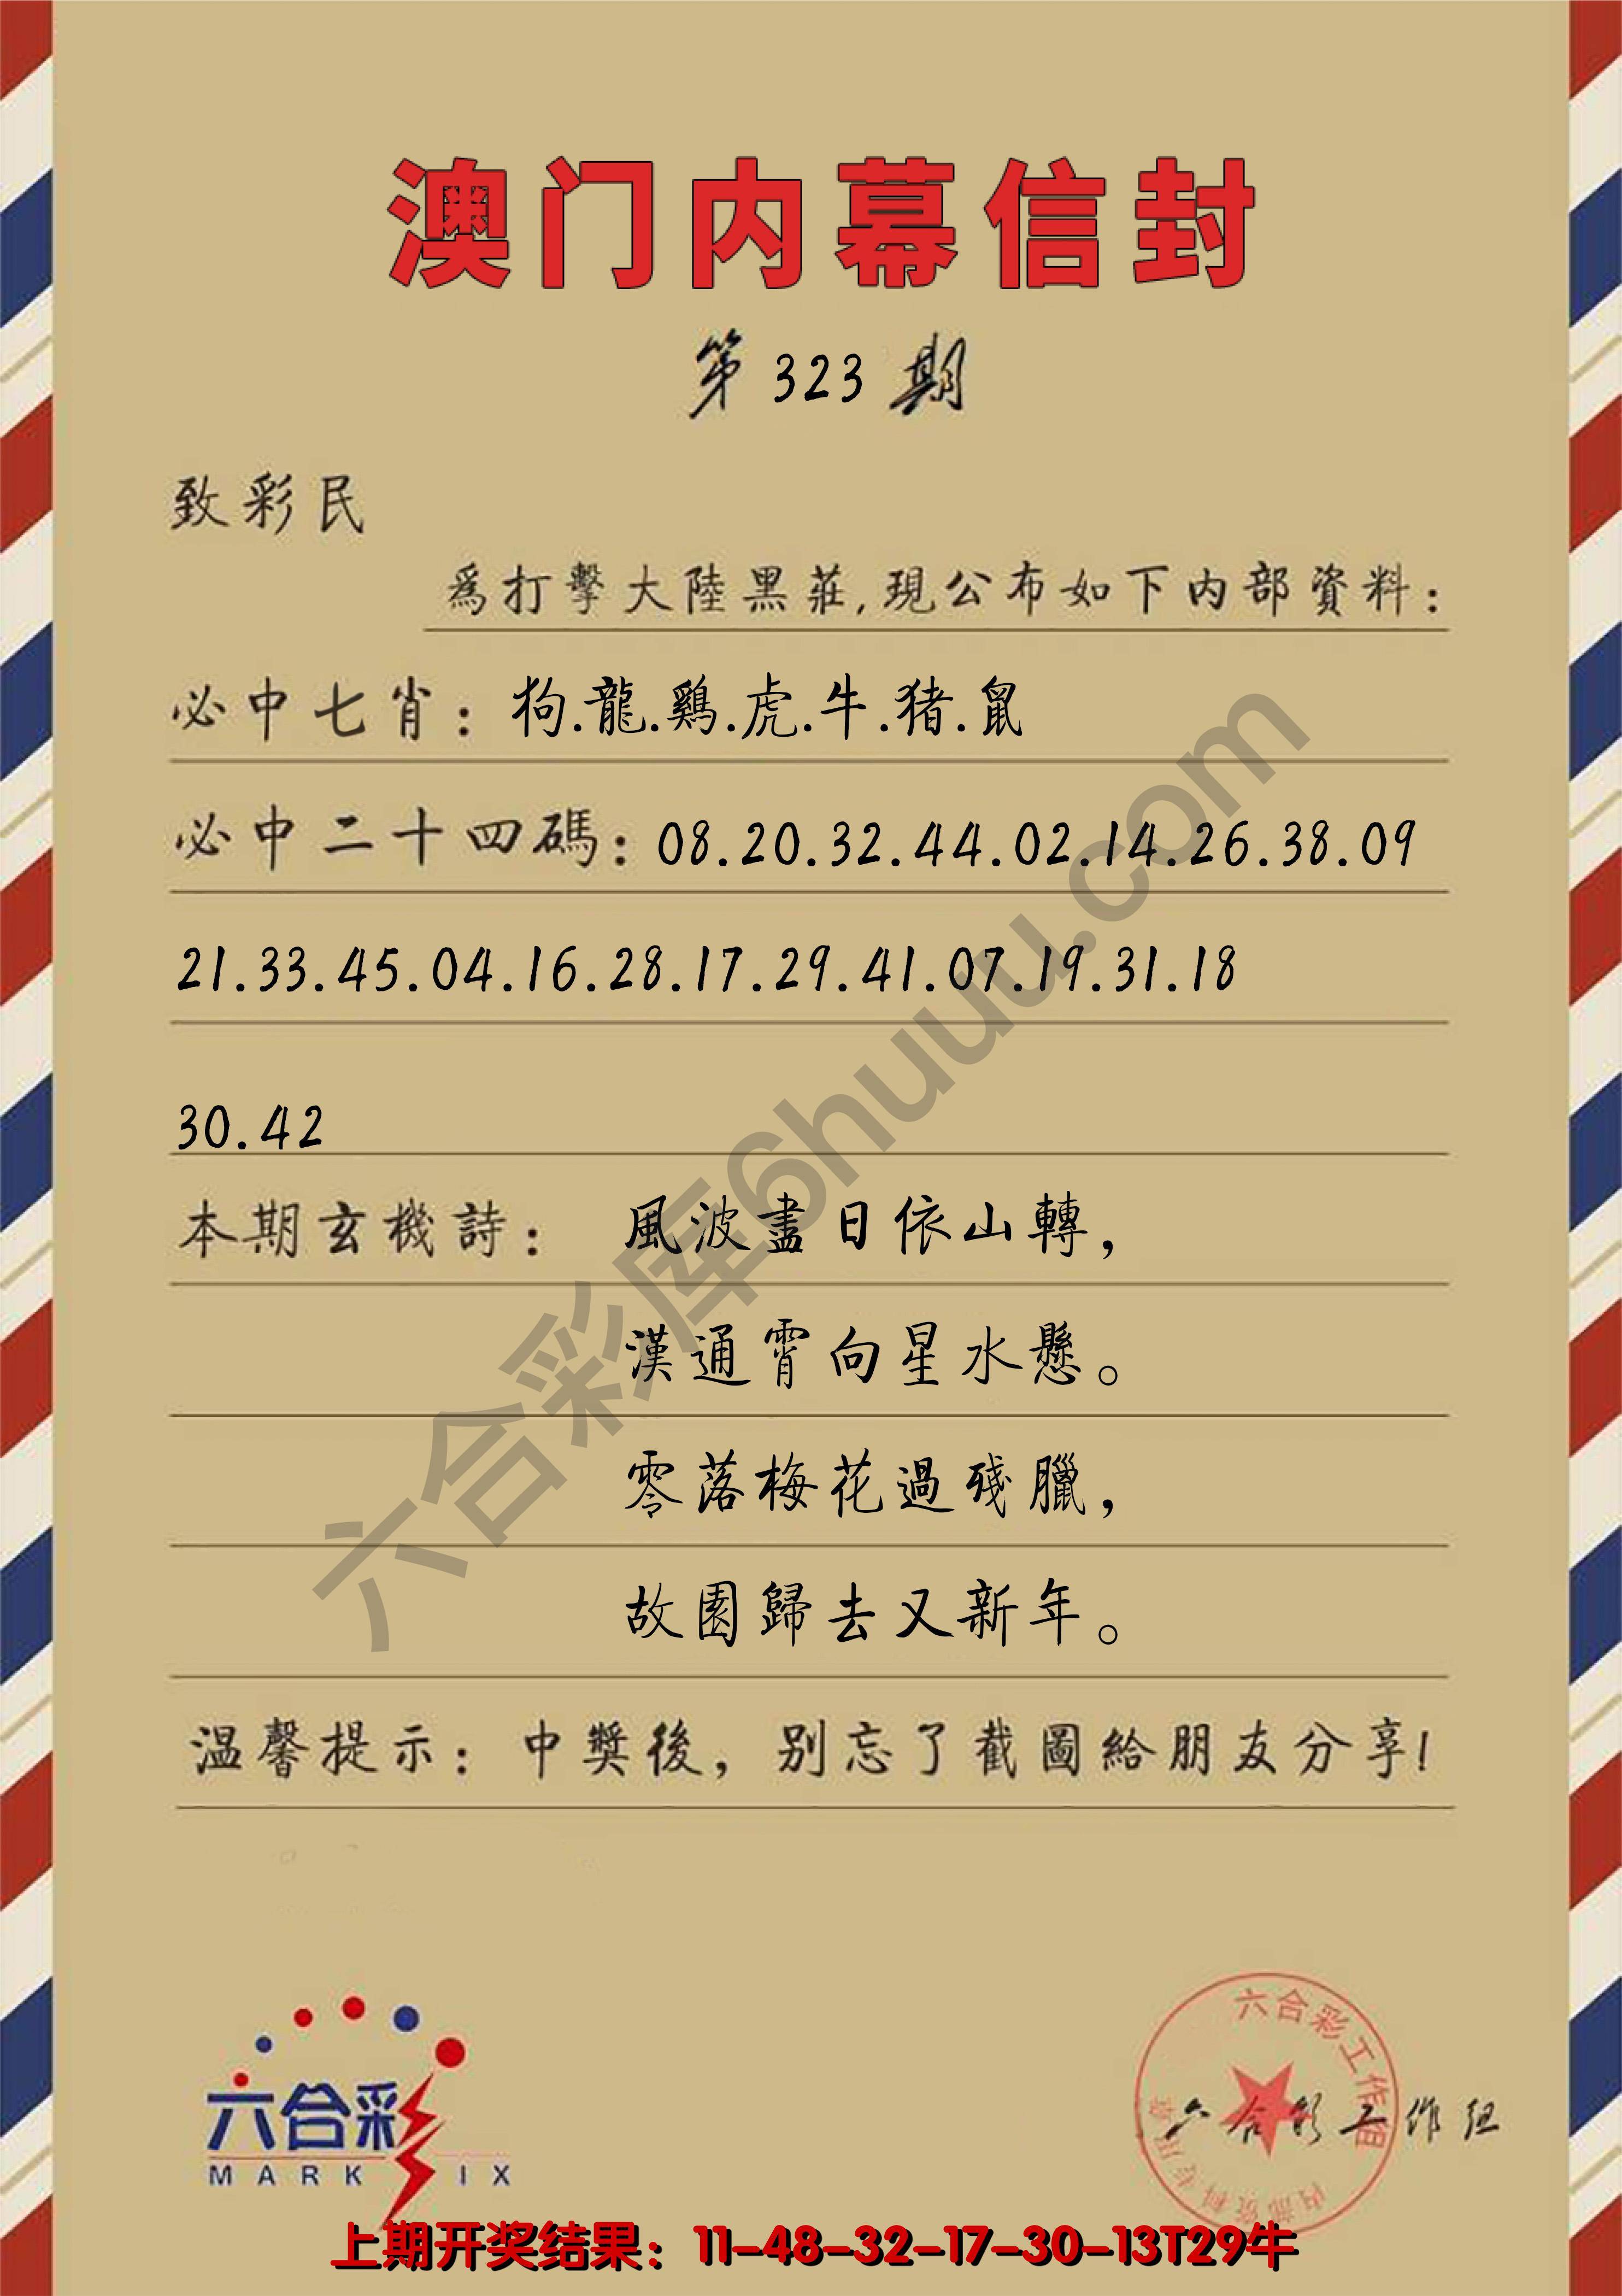 澳门内幕信封
第 323 期
致彩民
爲打擊大陸黑莊,現公布如下内部資料:
必中七肖: 狗.龍.鷄.虎.牛.猪.鼠
必中二十四碼: 08.20.32.44.02.14.26.38.09
21.33.45.04.16.28.17.29.41.07.19.31.18
30.42
本期玄機詩: 風波盡日依山轉，
漢通霄向星水懸。
零落梅花過殘臘，
故園歸去又新年。
温馨提示: 中獎後，别忘了截圖給朋友分享!
六合彩库6huuu.com
六合彩
MARK SIX
六合彩工作组
六合彩工作组
内部资料专用章
上期开奖结果：11-48-32-17-30-13T29牛